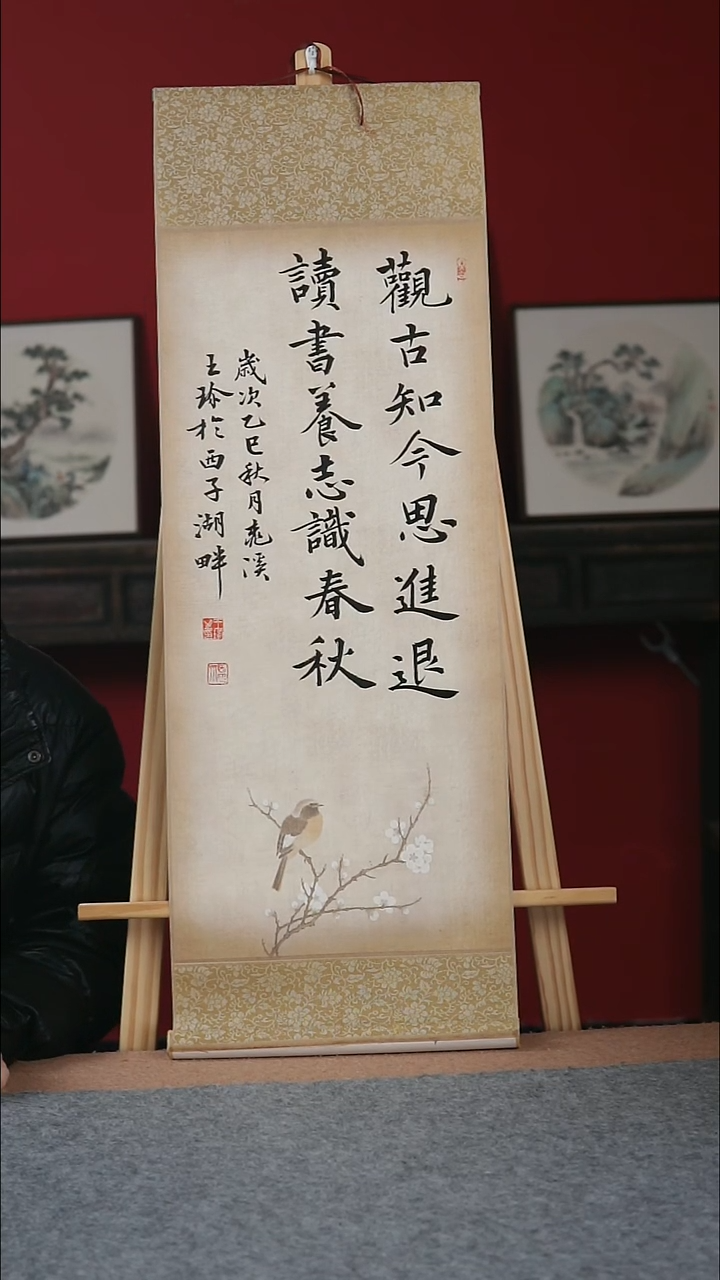 觀古知今思進退
讀書養志識春秋
歲次乙巳秋月堯溪
王珍於西子湖畔